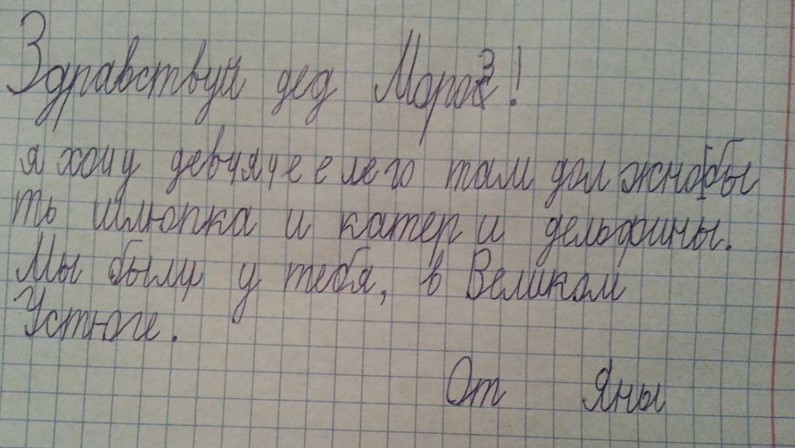 Здравствуй дед Мороз!
я хочу девчячее лего там должно бы
ть шлюпка и катер и дельфины.
Мы были у тебя, в Великом
Устюге.
От Яны